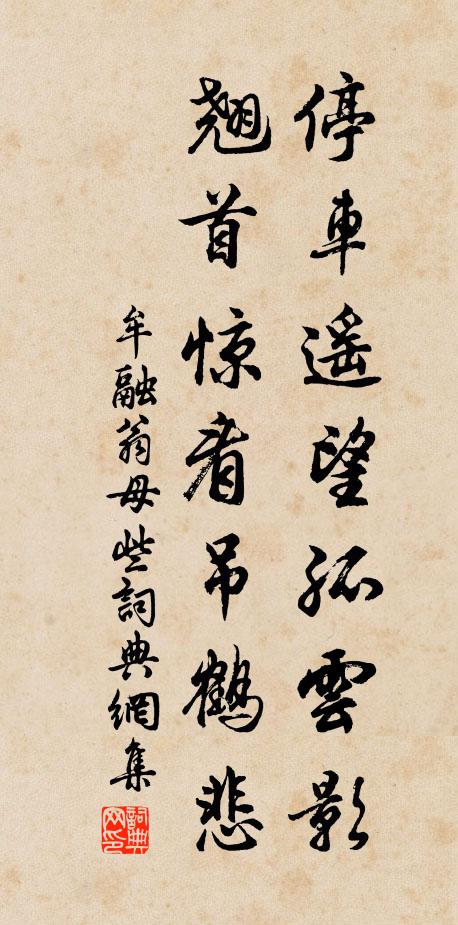 停車遥望孤雲影
翹首惊看吊鶴悲
牟融翁母些詞典網集
詞典网印